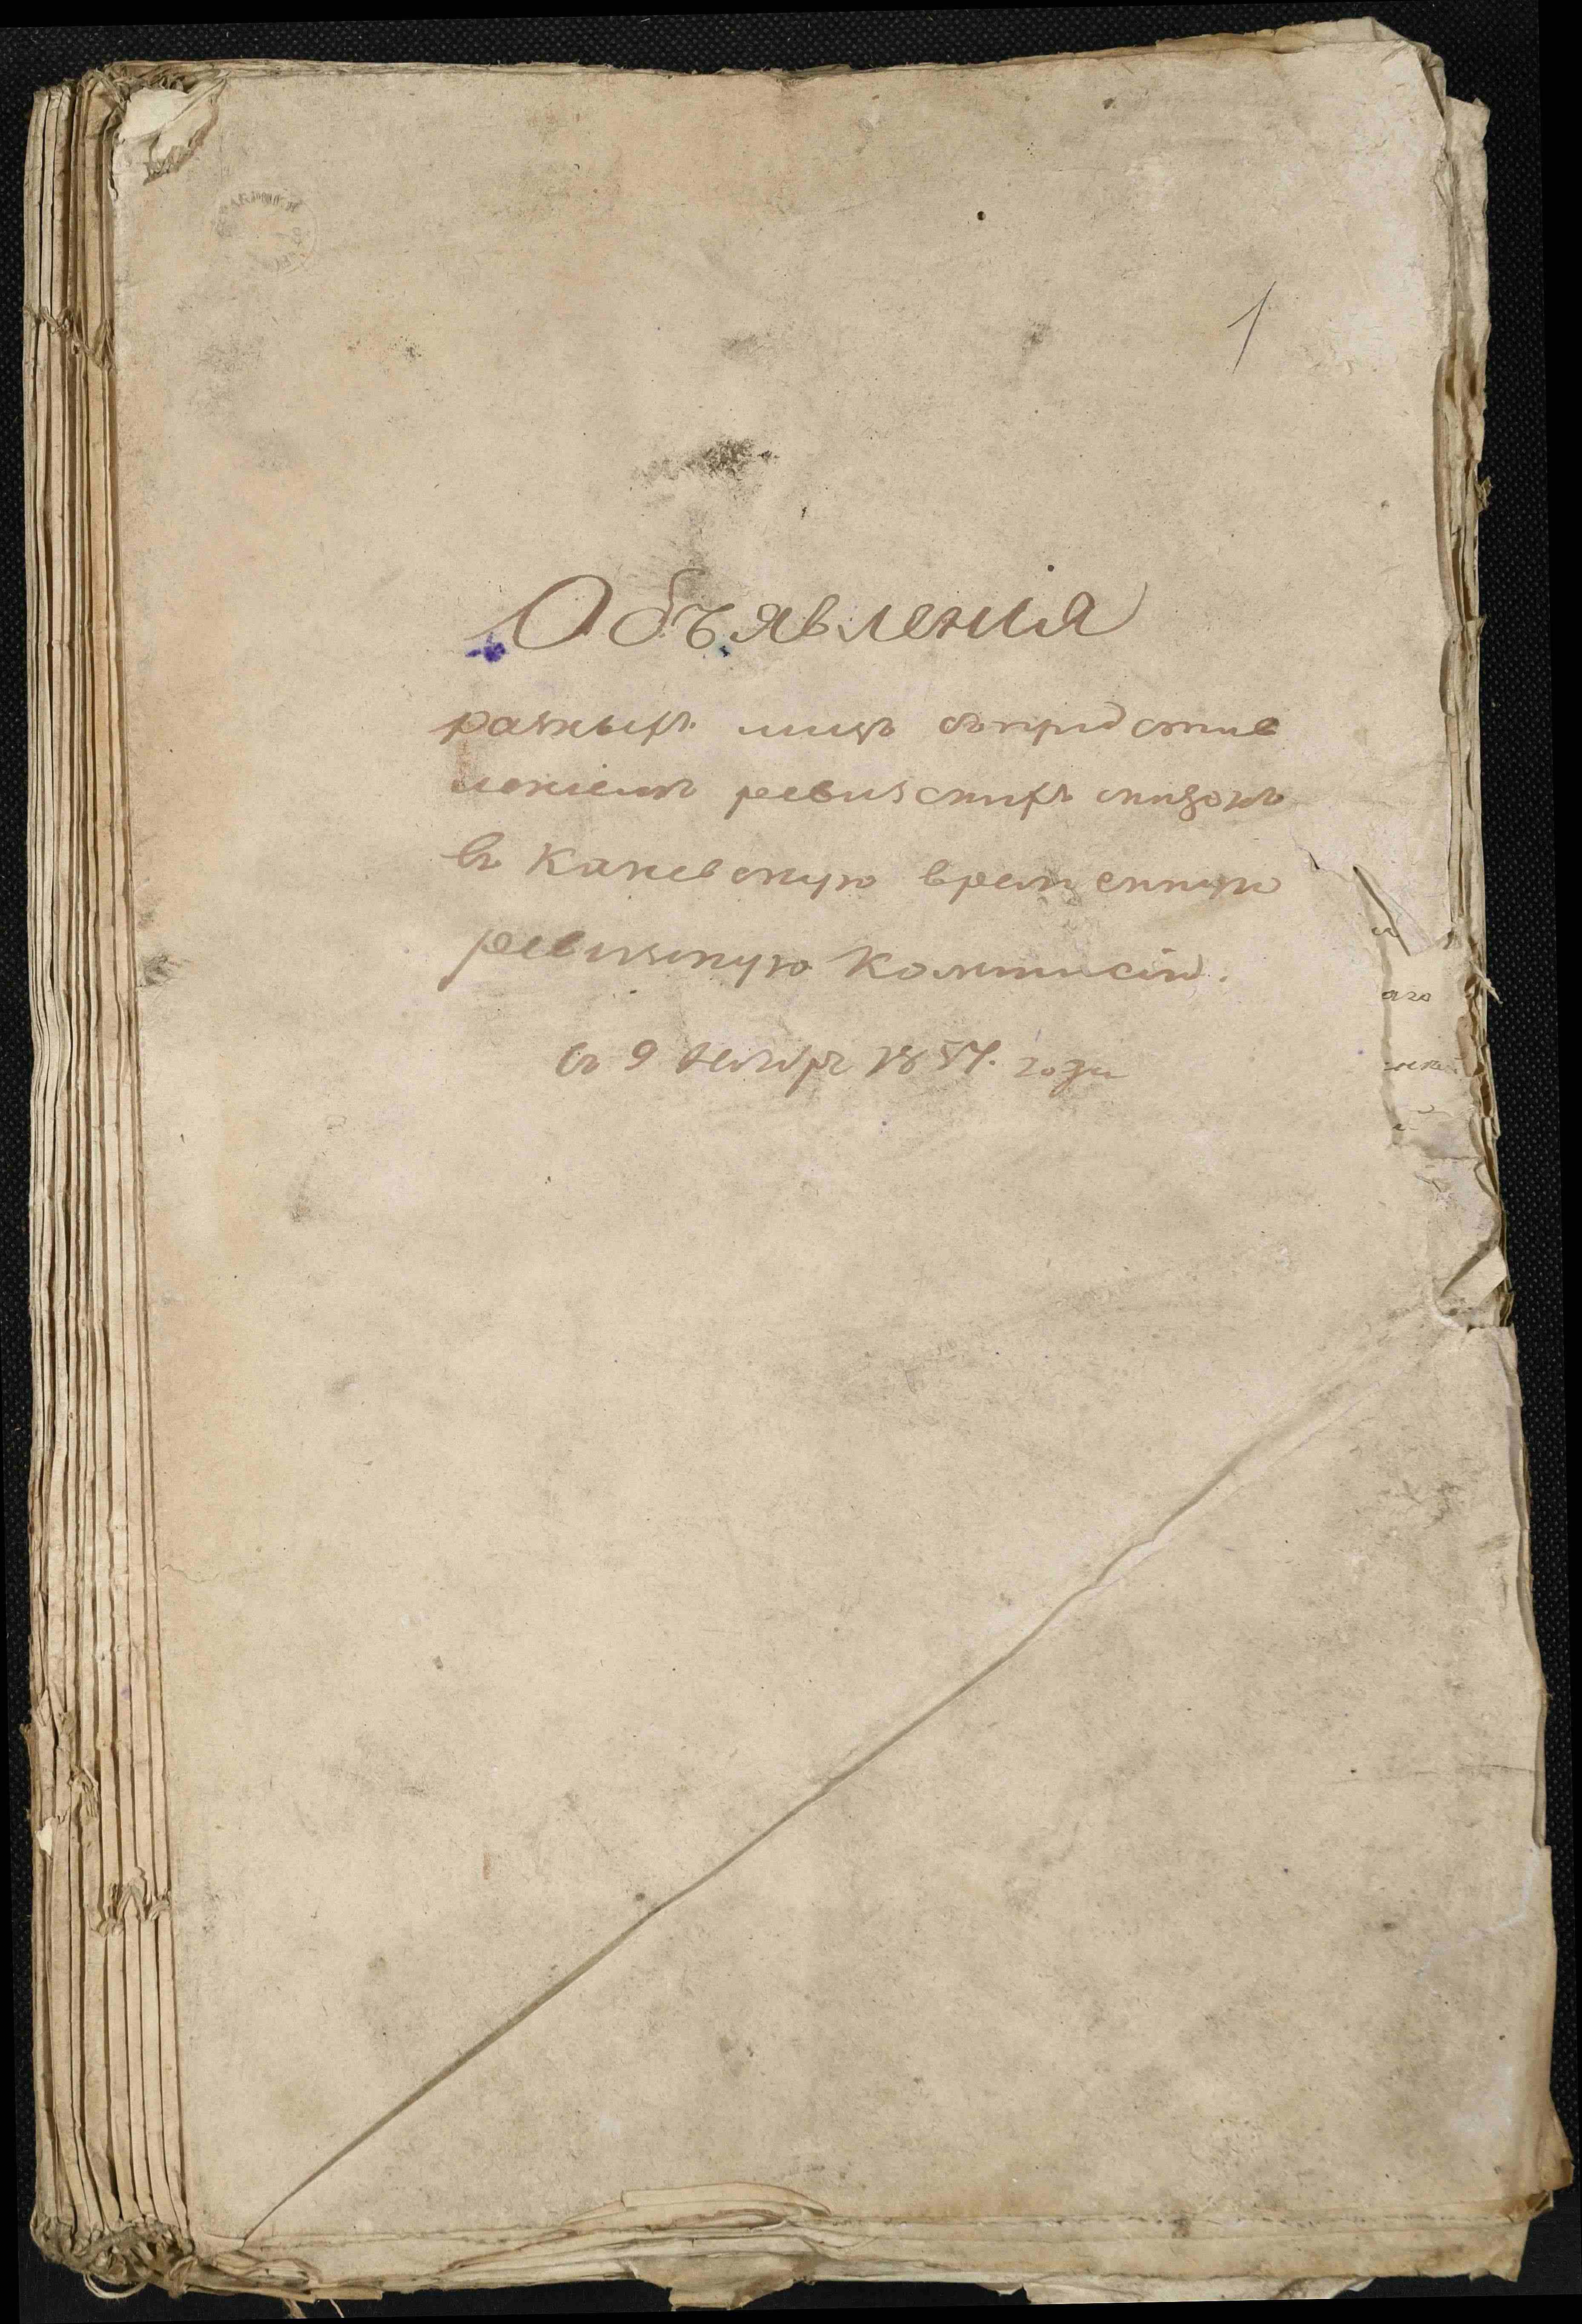 1
Объявленія
разныхъ лицъ съ представ
леніемъ ревизскихъ сказокъ
въ Каневскую временную
ревизскую Коммисію.
съ 9 Октября 1857. года
аго